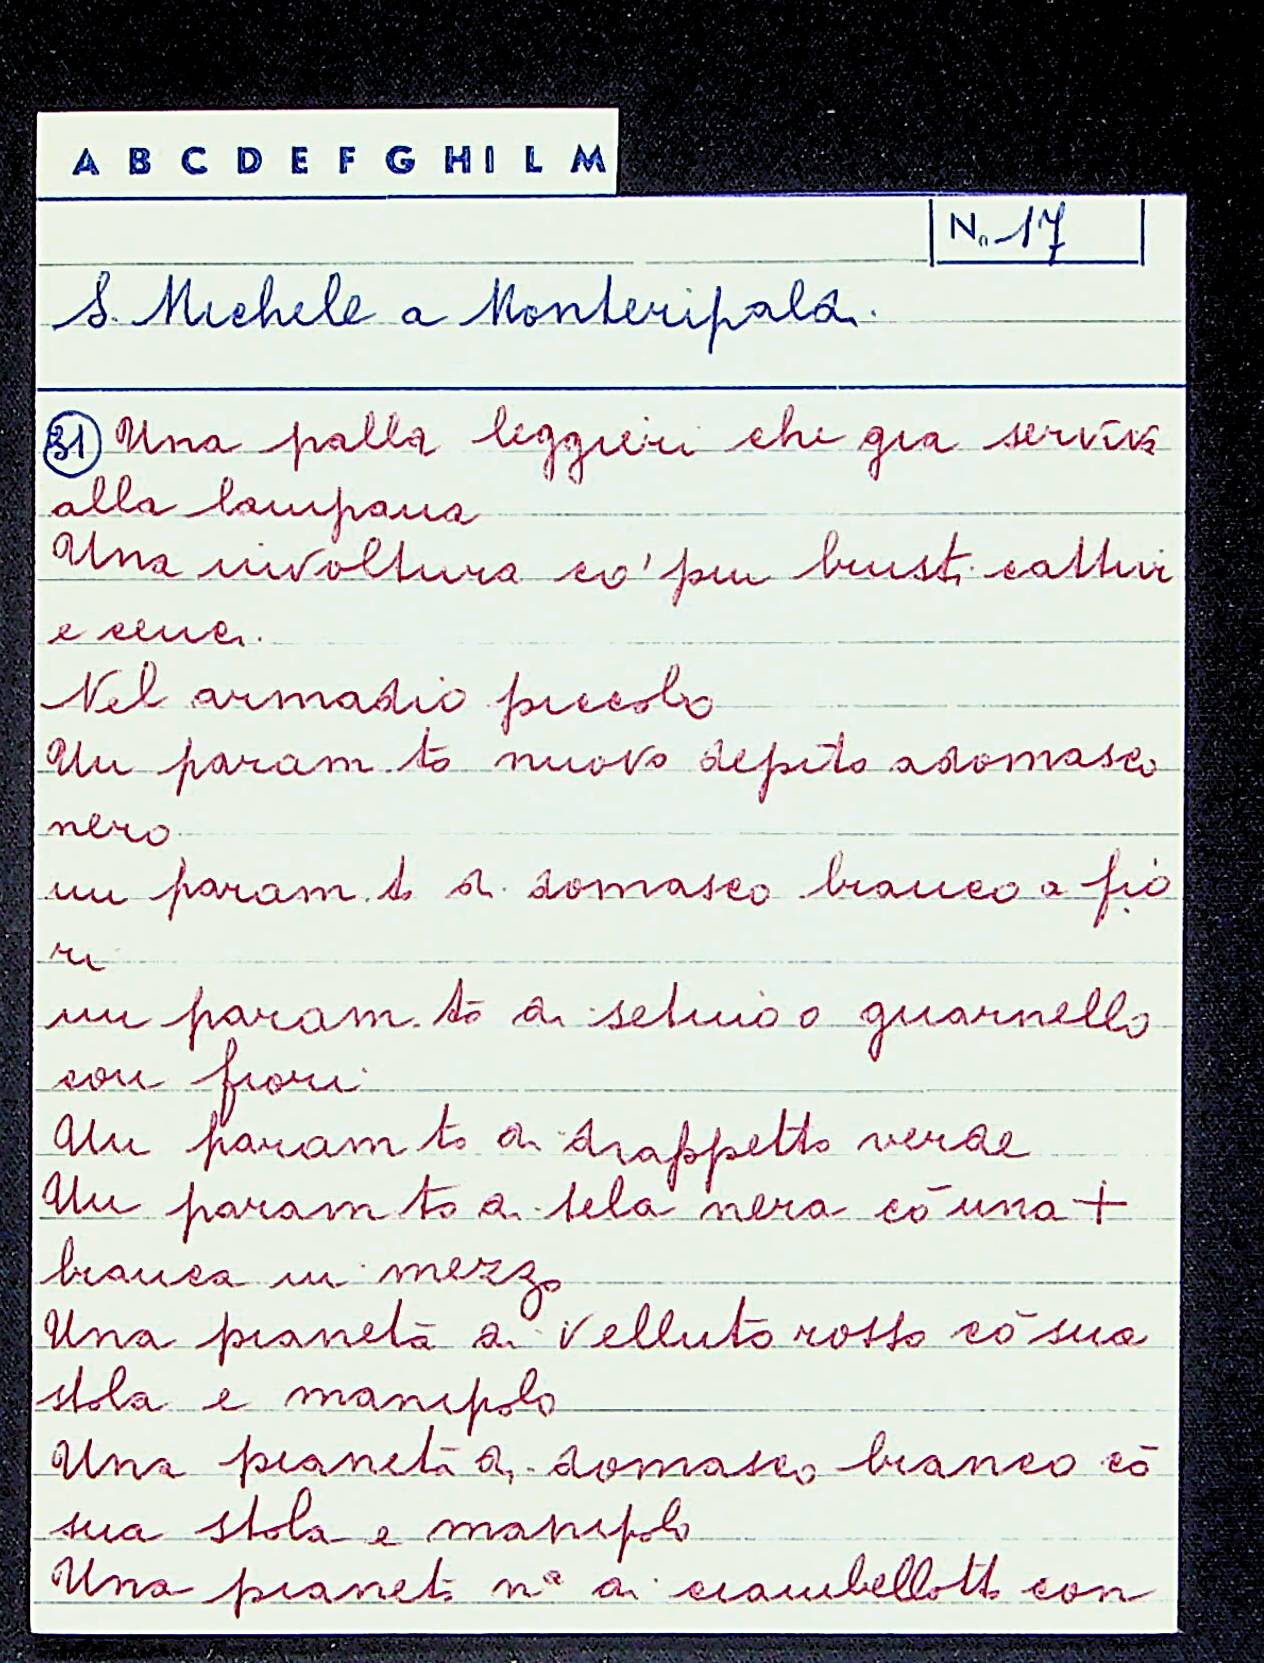 A B C D E F G H I L M
N. 17
S. Michele a Monteripaldi.
31 Una palla leggieri che gia serviva
alla lampana
Una involtura co' piu busti cattivi
e cenci.
Nel armadio piccolo
Un param.to nuovo depito adomasco
nero
un param.to di domasco bianco a fio
ri
un param.to di setuio o guarnello
con fiori
Un param to di drappetto verde
Un param to di tela nera cō una +
bianca in mezzo
Una pianeta di velluto rosso cō sua
stola e manipolo
Una pianeta di domasco bianco cō
sua stola e manipolo
Una pianeta nª di ciambellotto con